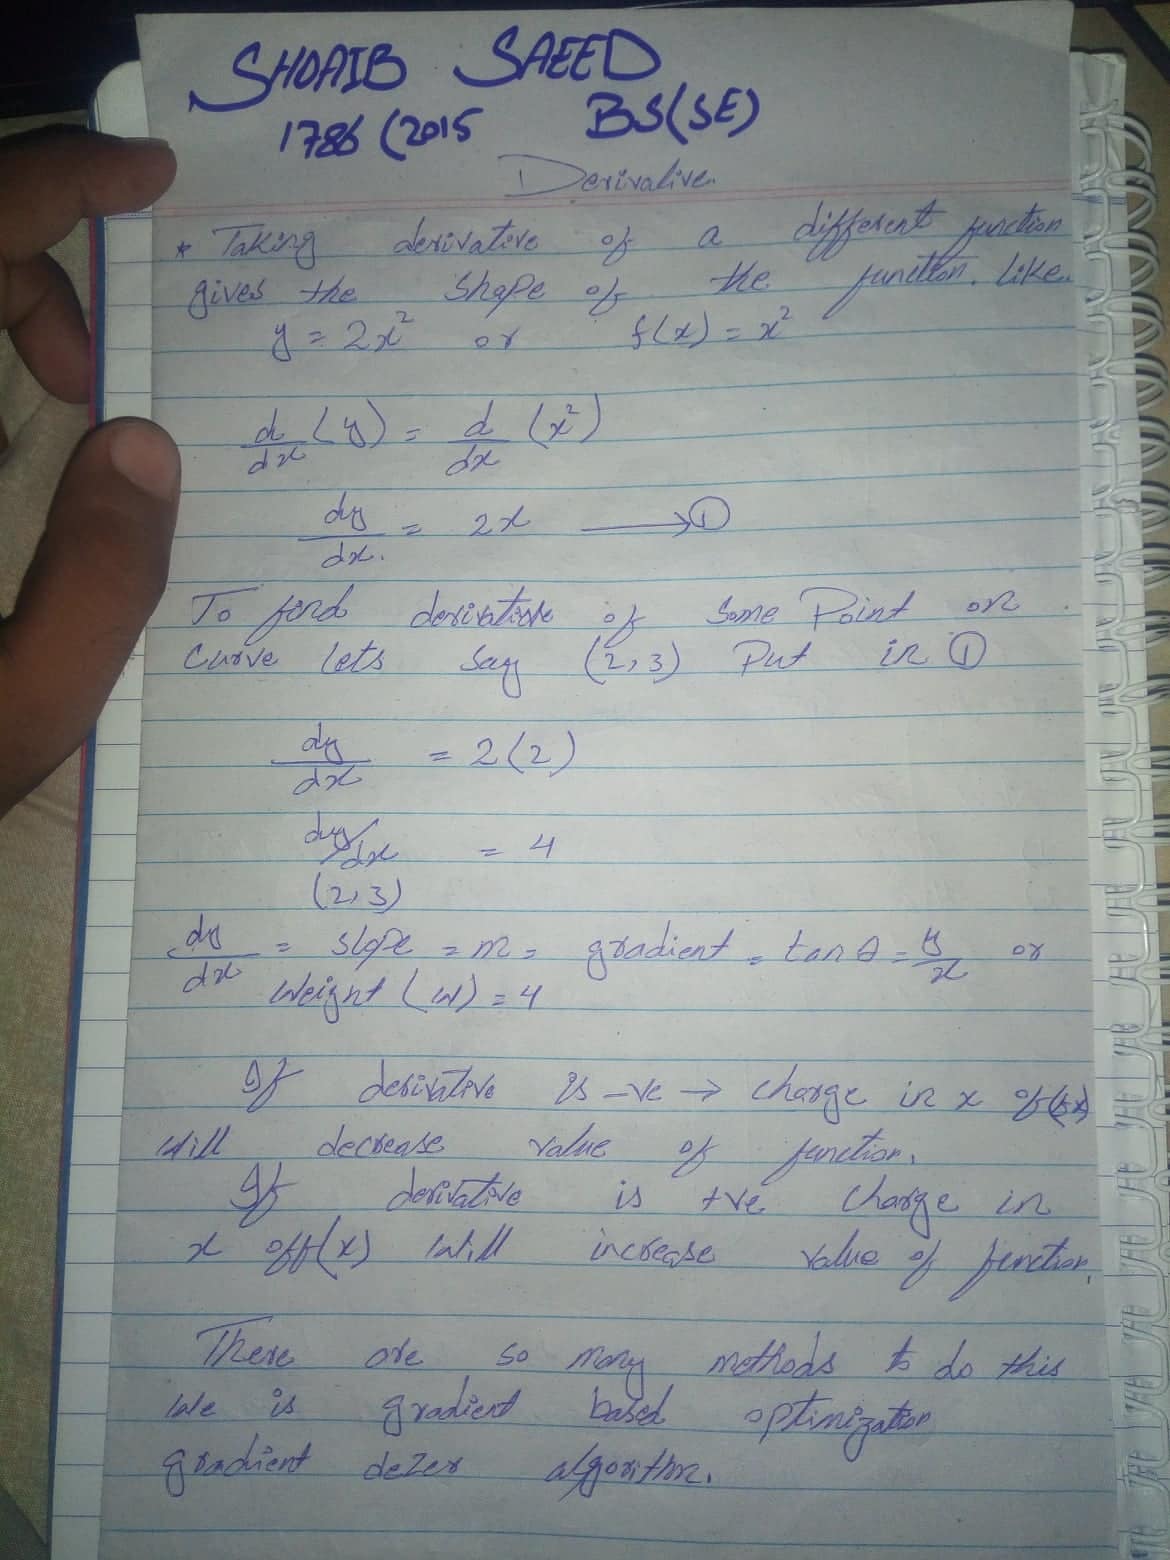 SHOAIB SAEED
1786 (2015 BS(SE)
Derivative.
* Taking derivative of a different function
gives the shape of the function. Like.
y = 2x² or f(x) = x²
d/dx (y) = d/dx (x²)
dy/dx. = 2x ⟶ ①
To find derivative of Some Point on
Curve lets say (2,3) Put in ①
dy/dx = 2(2)
dy/dx = 4
(2,3)
dy/dx = slope = m = gradient = tan θ = y/x or
Weight (w) = 4
If derivative is -ve → change in x of f(x)
will decrease value of function.
If derivative is +ve change in
x of f(x) will increase value of function.
There are so many methods to do this
is gradient based optimization
gradient algorithm.